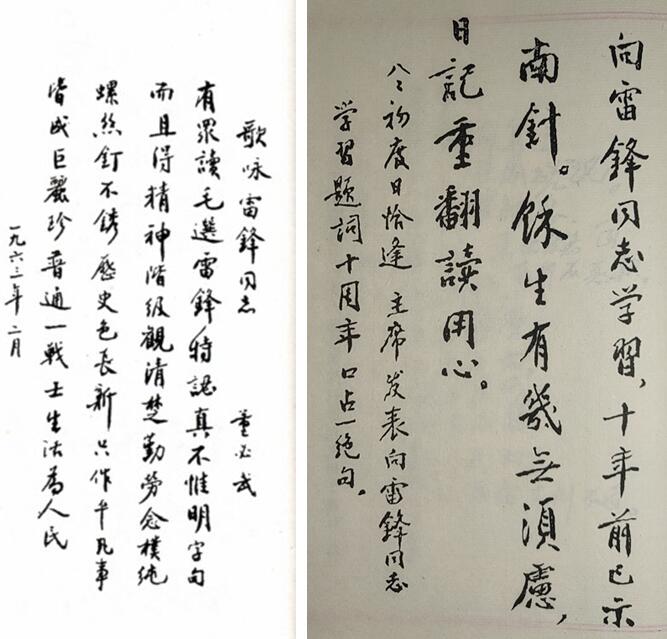 歌咏雷鋒同志 董必武
有眾讀毛選雷鋒特認真不惟明字句
而且得精神階級觀清楚勤勞念樸純
螺絲釘不銹歷史色長新只作平凡事
皆成巨麗珍普通一戰士生活為人民
一九六三年二月
向雷鋒同志学習，十年前已示
南針。餘生有幾無須慮，
日記重翻讀用心。
八〻初度日恰逢 主席发表向雷鋒同志
学習题詞十周年口占一絕句。